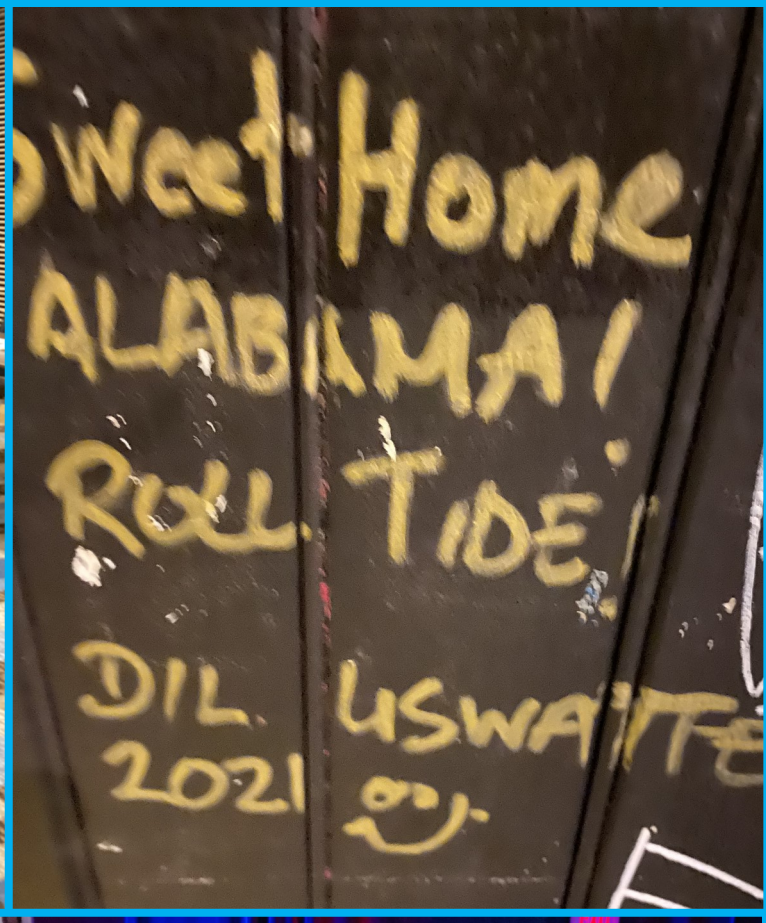 Sweet Home
ALABAMA!
ROLL TIDE!
DIL USWATTE
2021